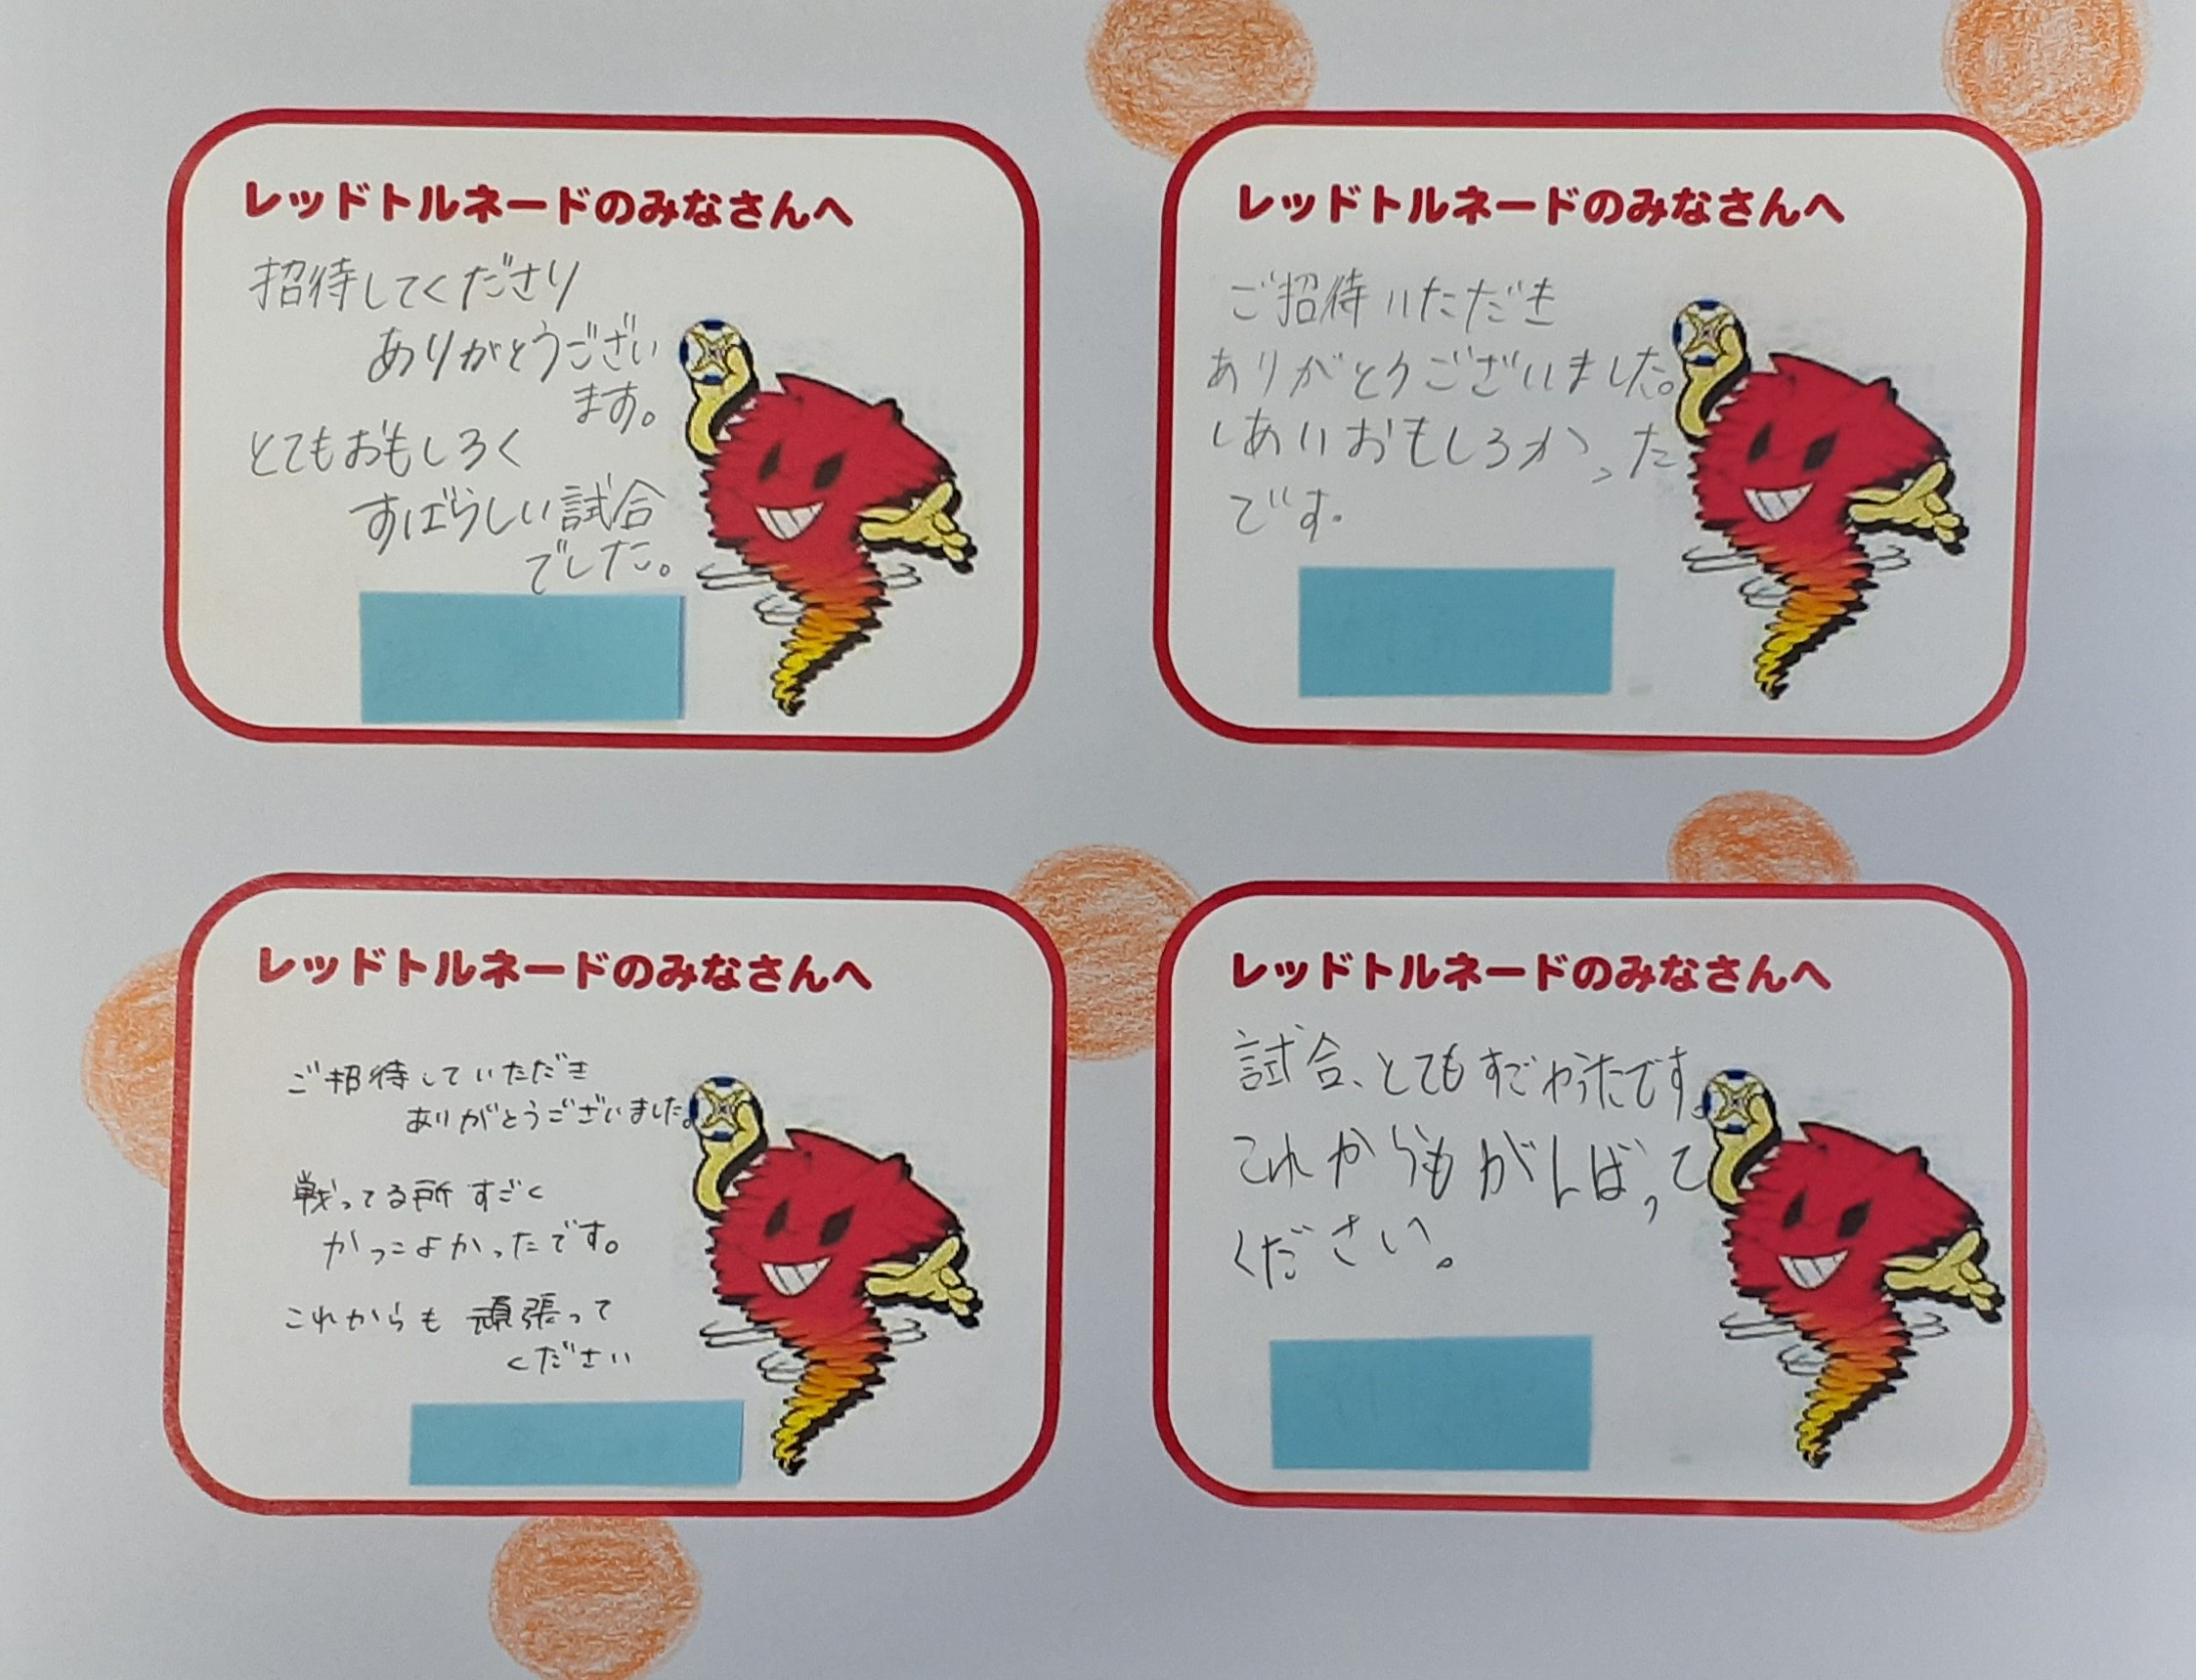 レッドトルネードのみなさんへ
招待してくださり
ありがとうござい
ます。
とてもおもしろく
すばらしい試合
でした。
レッドトルネードのみなさんへ
ご招待いただき
ありがとうございました。
しあいおもしろかった
です。
レッドトルネードのみなさんへ
ご招待していただき
ありがとうございました。
戦ってる所すごく
かっこよかったです。
これからも頑張って
ください
レッドトルネードのみなさんへ
試合、とてもすごかったです。
これからもがんばって
ください。